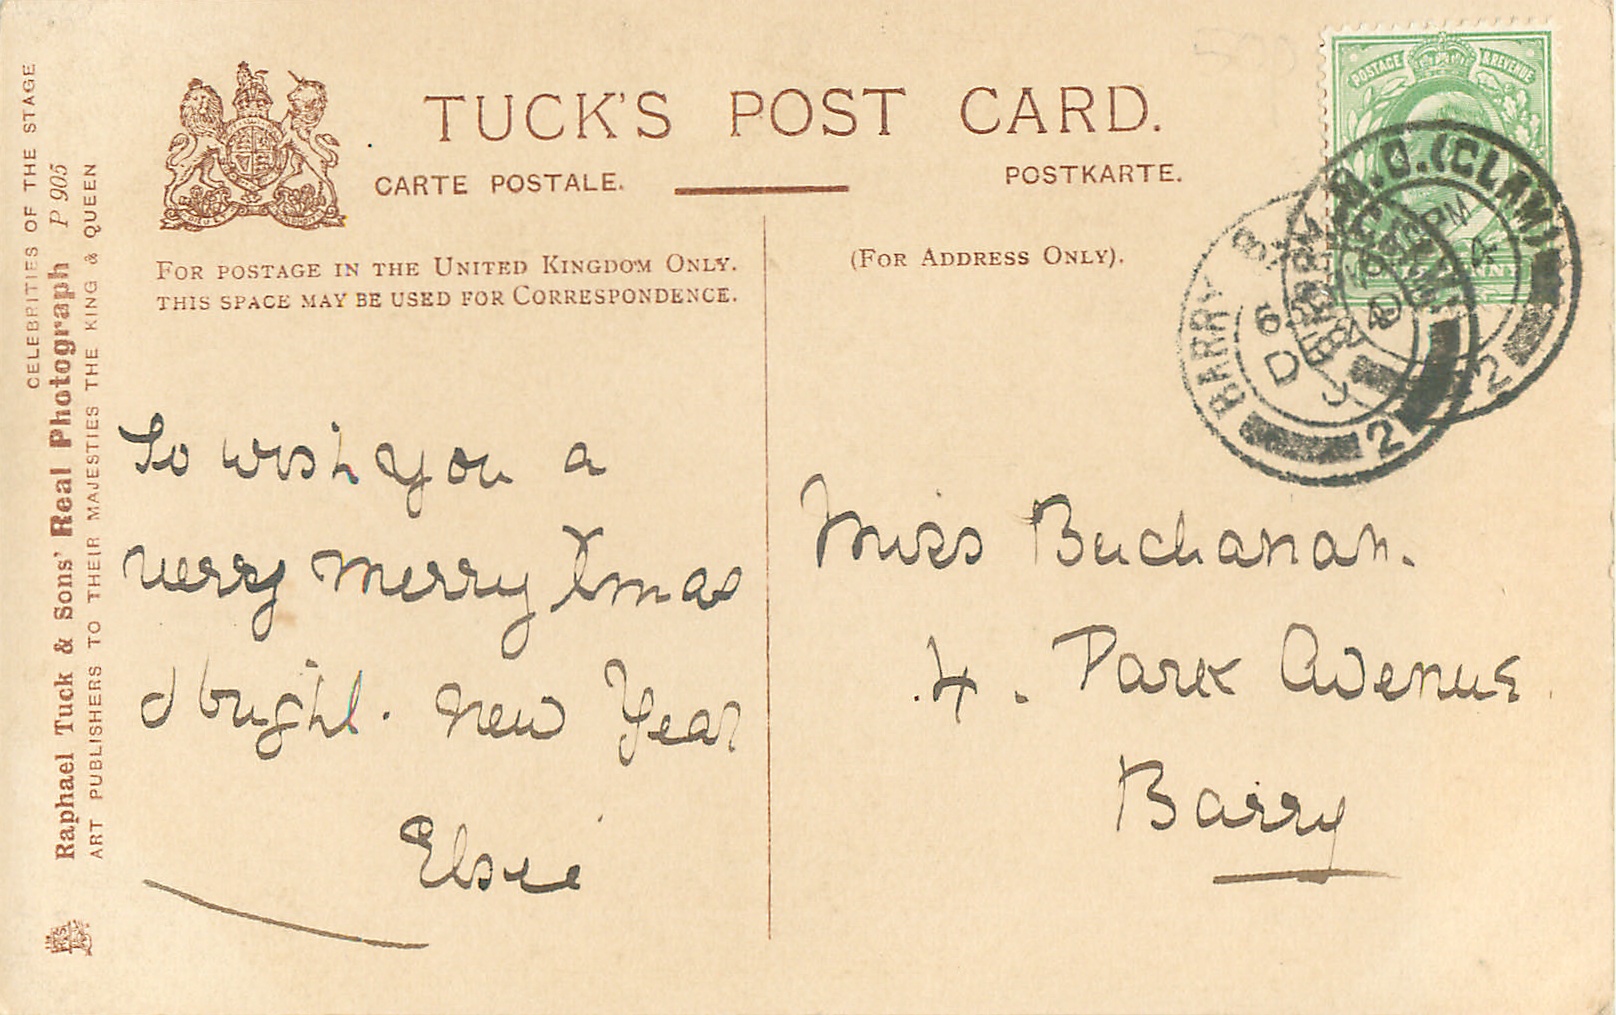 CELEBRITIES OF THE STAGE
Raphael Tuck & Sons' Real Photograph P 905
ART PUBLISHERS TO THEIR MAJESTIES THE KING & QUEEN
TUCK'S POST CARD.
CARTE POSTALE.
POSTKARTE.
FOR POSTAGE IN THE UNITED KINGDOM ONLY.
THIS SPACE MAY BE USED FOR CORRESPONDENCE.
(FOR ADDRESS ONLY).
POSTAGE & REVENUE
BARRY
2
2
To wish you a
very merry Xmas
& bright. new Year
Elsie
Miss Buchanan.
4. Park Avenue.
Barry